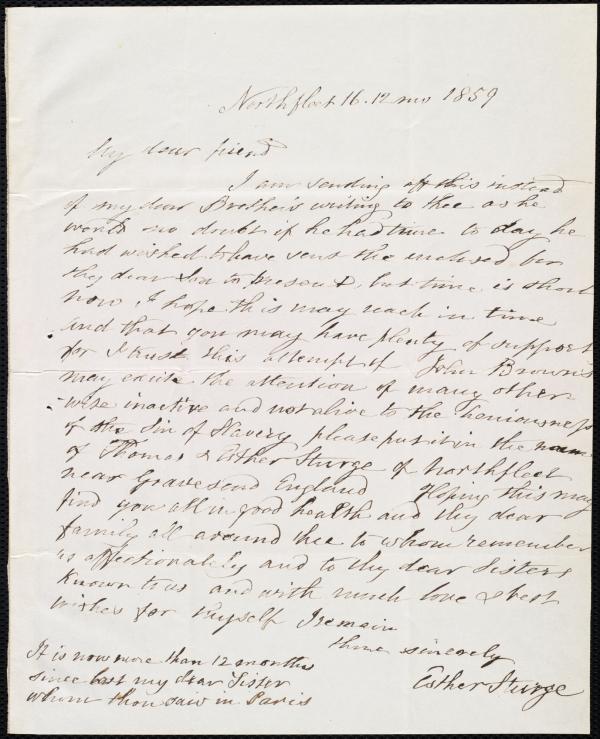 Northfleet 16. 12 mo 1859
My dear friend
I am sending off this instead
of my dear Brother's writing to thee as he
would no doubt if he had time to day he
had wished to have sent the enclosed for
thy dear Son to present, but time is short
now, I hope this may reach in time
and that you may have plenty of support
for I trust this attempt of John Brown's
may excite the attention of many other
wise inactive and not alive to the heniousness
of the Sin of Slavery please put it in the name
of Thomas & Esther Sturge of Northfleet
near Gravesend England Hoping this may
find you all in good health and thy dear
family all around thee to whom remember
us affectionately and to thy dear Sisters
known to us and with much love & best
wishes for thyself I remain
thine sincerely
Esther Sturge
It is now more than 12 months
since lost my dear Sister
whom thou saw in Paris